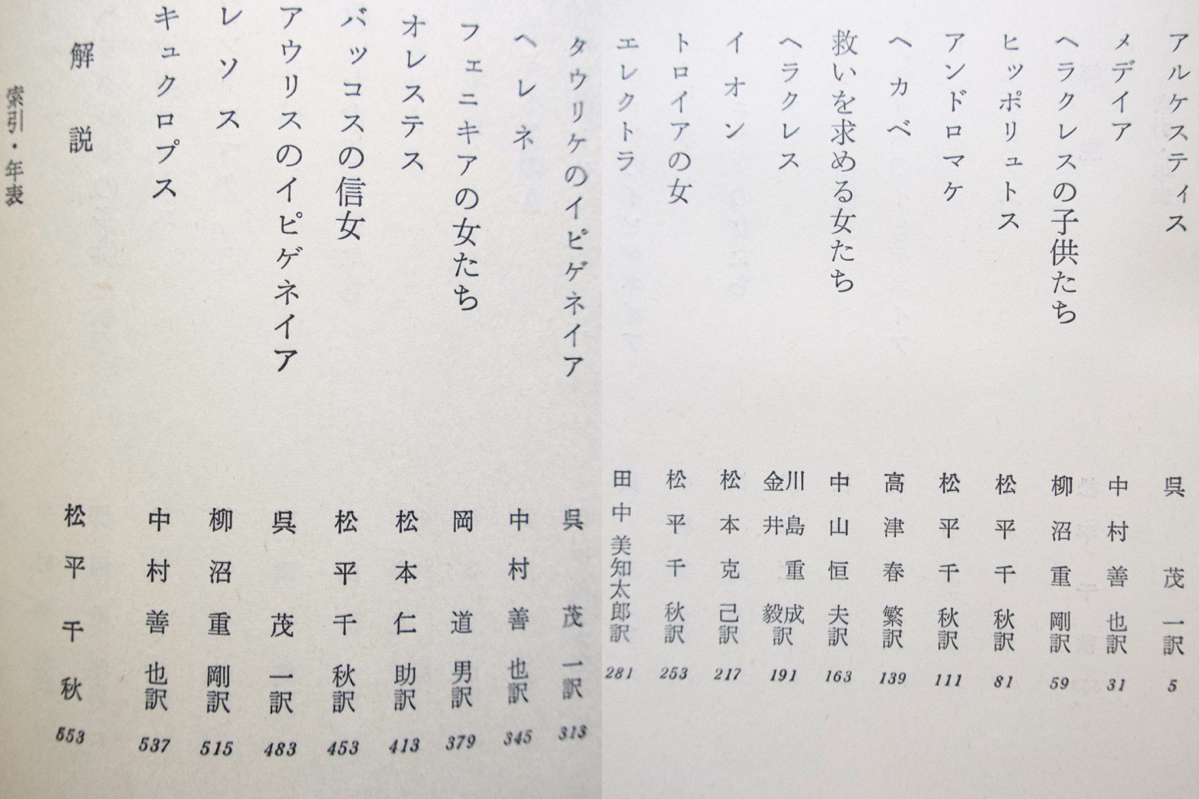 アルケスティス 呉茂一訳 5
メデイア 中村善也訳 31
ヘラクレスの子供たち 柳沼重剛訳 59
ヒッポリュトス 松平千秋訳 81
アンドロマケ 松平千秋訳 111
ヘカベ 高津春繁訳 139
救いを求める女たち 中山恒夫訳 163
ヘラクレス 川島重成 金井毅訳 191
イオン 松本克己訳 217
トロイアの女 松平千秋訳 253
エレクトラ 田中美知太郎訳 281
タウリケのイピゲネイア 呉茂一訳 313
ヘレネ 中村善也訳 345
フェニキアの女たち 岡道男訳 379
オレステス 松本仁助訳 413
バッコスの信女 松平千秋訳 453
アウリスのイピゲネイア 呉茂一訳 483
レソス 柳沼重剛訳 515
キュクロプス 中村善也訳 537
解説 松平千秋 553
索引・年表